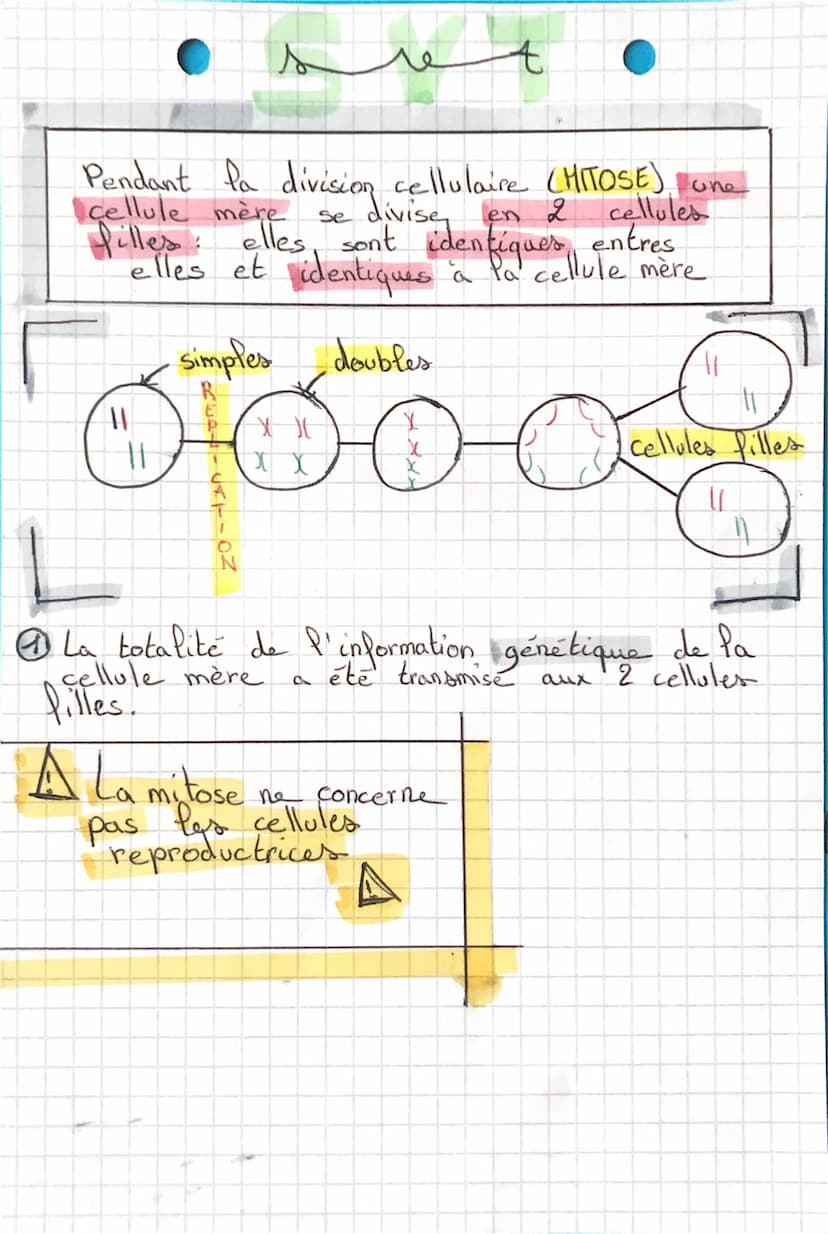 SVT
svt
Pendant la division cellulaire (MITOSE) une
cellule mère se divise en 2 cellules
filles : elles sont identiques entres
elles et identiques à la cellule mère
simples
doubles
REPLICATION
cellules filles
① La totalité de l'information génétique de la
cellule mère a été transmise aux 2 cellules
filles.
⚠ La mitose ne concerne
pas les cellules
reproductrices
⚠